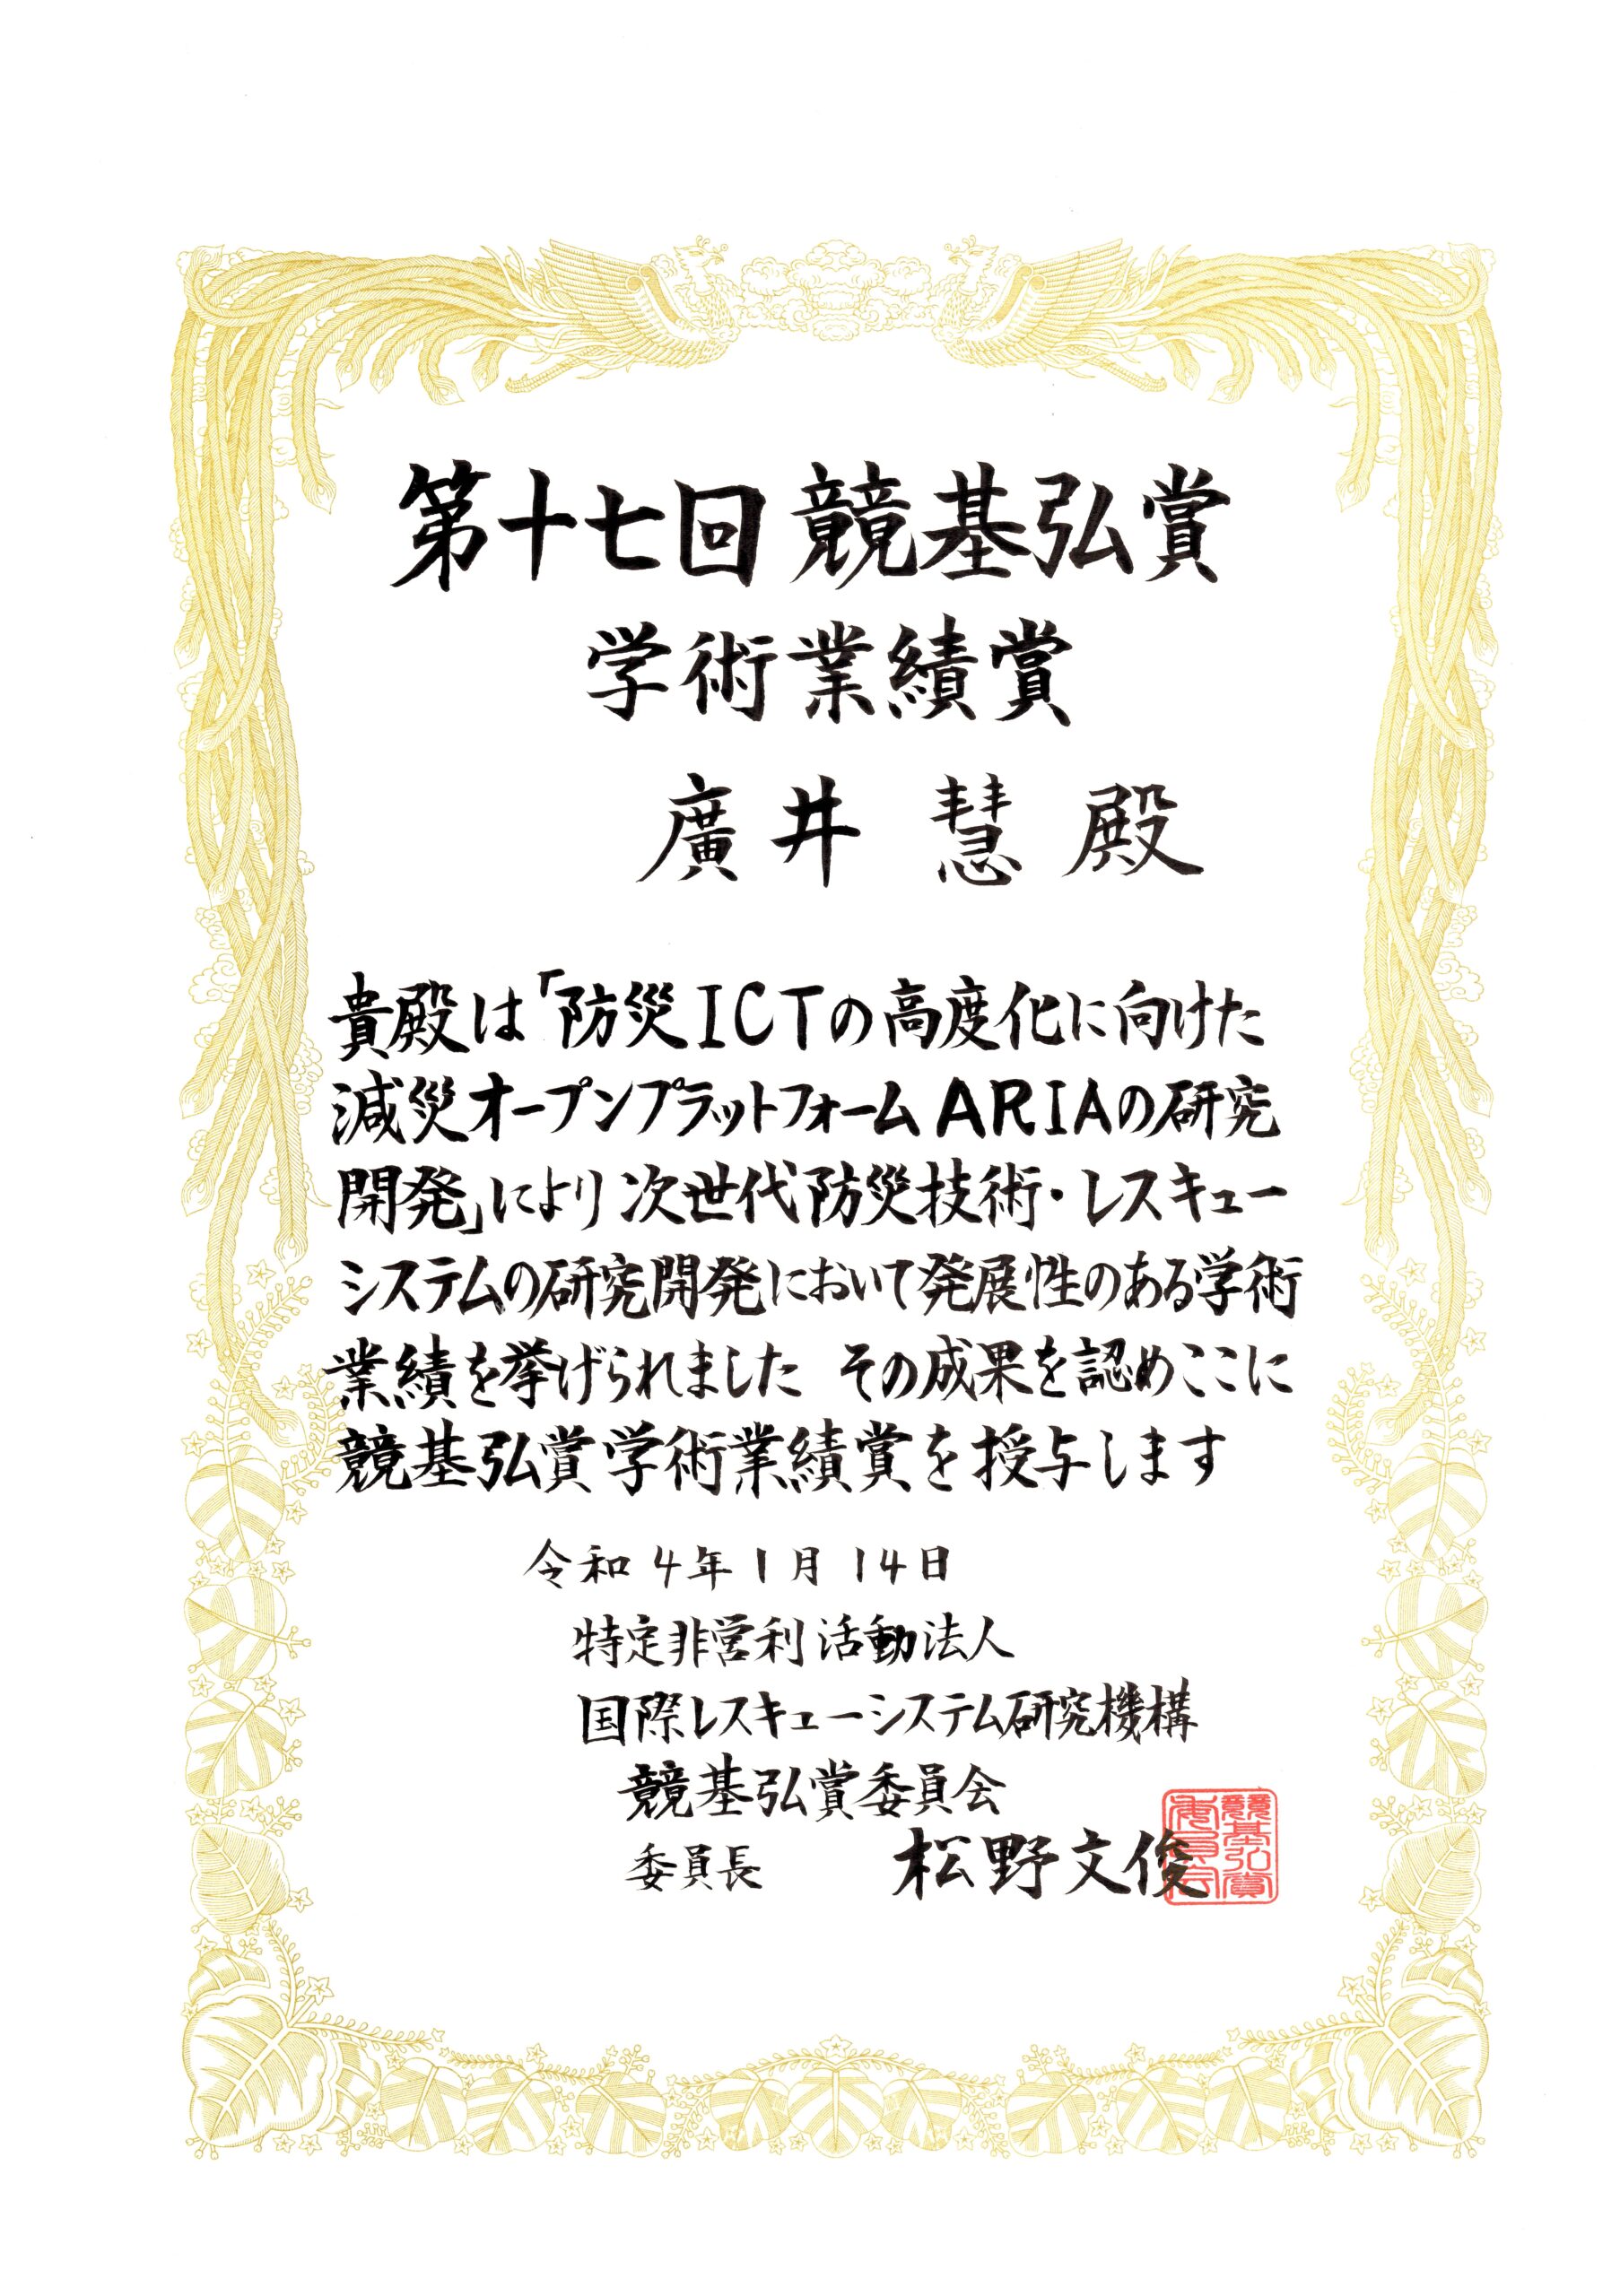 第十七回 競基弘賞
学術業績賞
廣井 慧 殿
貴殿は「防災ICTの高度化に向けた
減災オープンプラットフォームARIAの研究
開発」により次世代防災技術・レスキュー
システムの研究開発において発展性のある学術
業績を挙げられました その成果を認めここに
競基弘賞学術業績賞を授与します
令和4年1月14日
特定非営利活動法人
国際レスキューシステム研究機構
競基弘賞委員会
委員長 松野文俊
競基弘賞
委員会